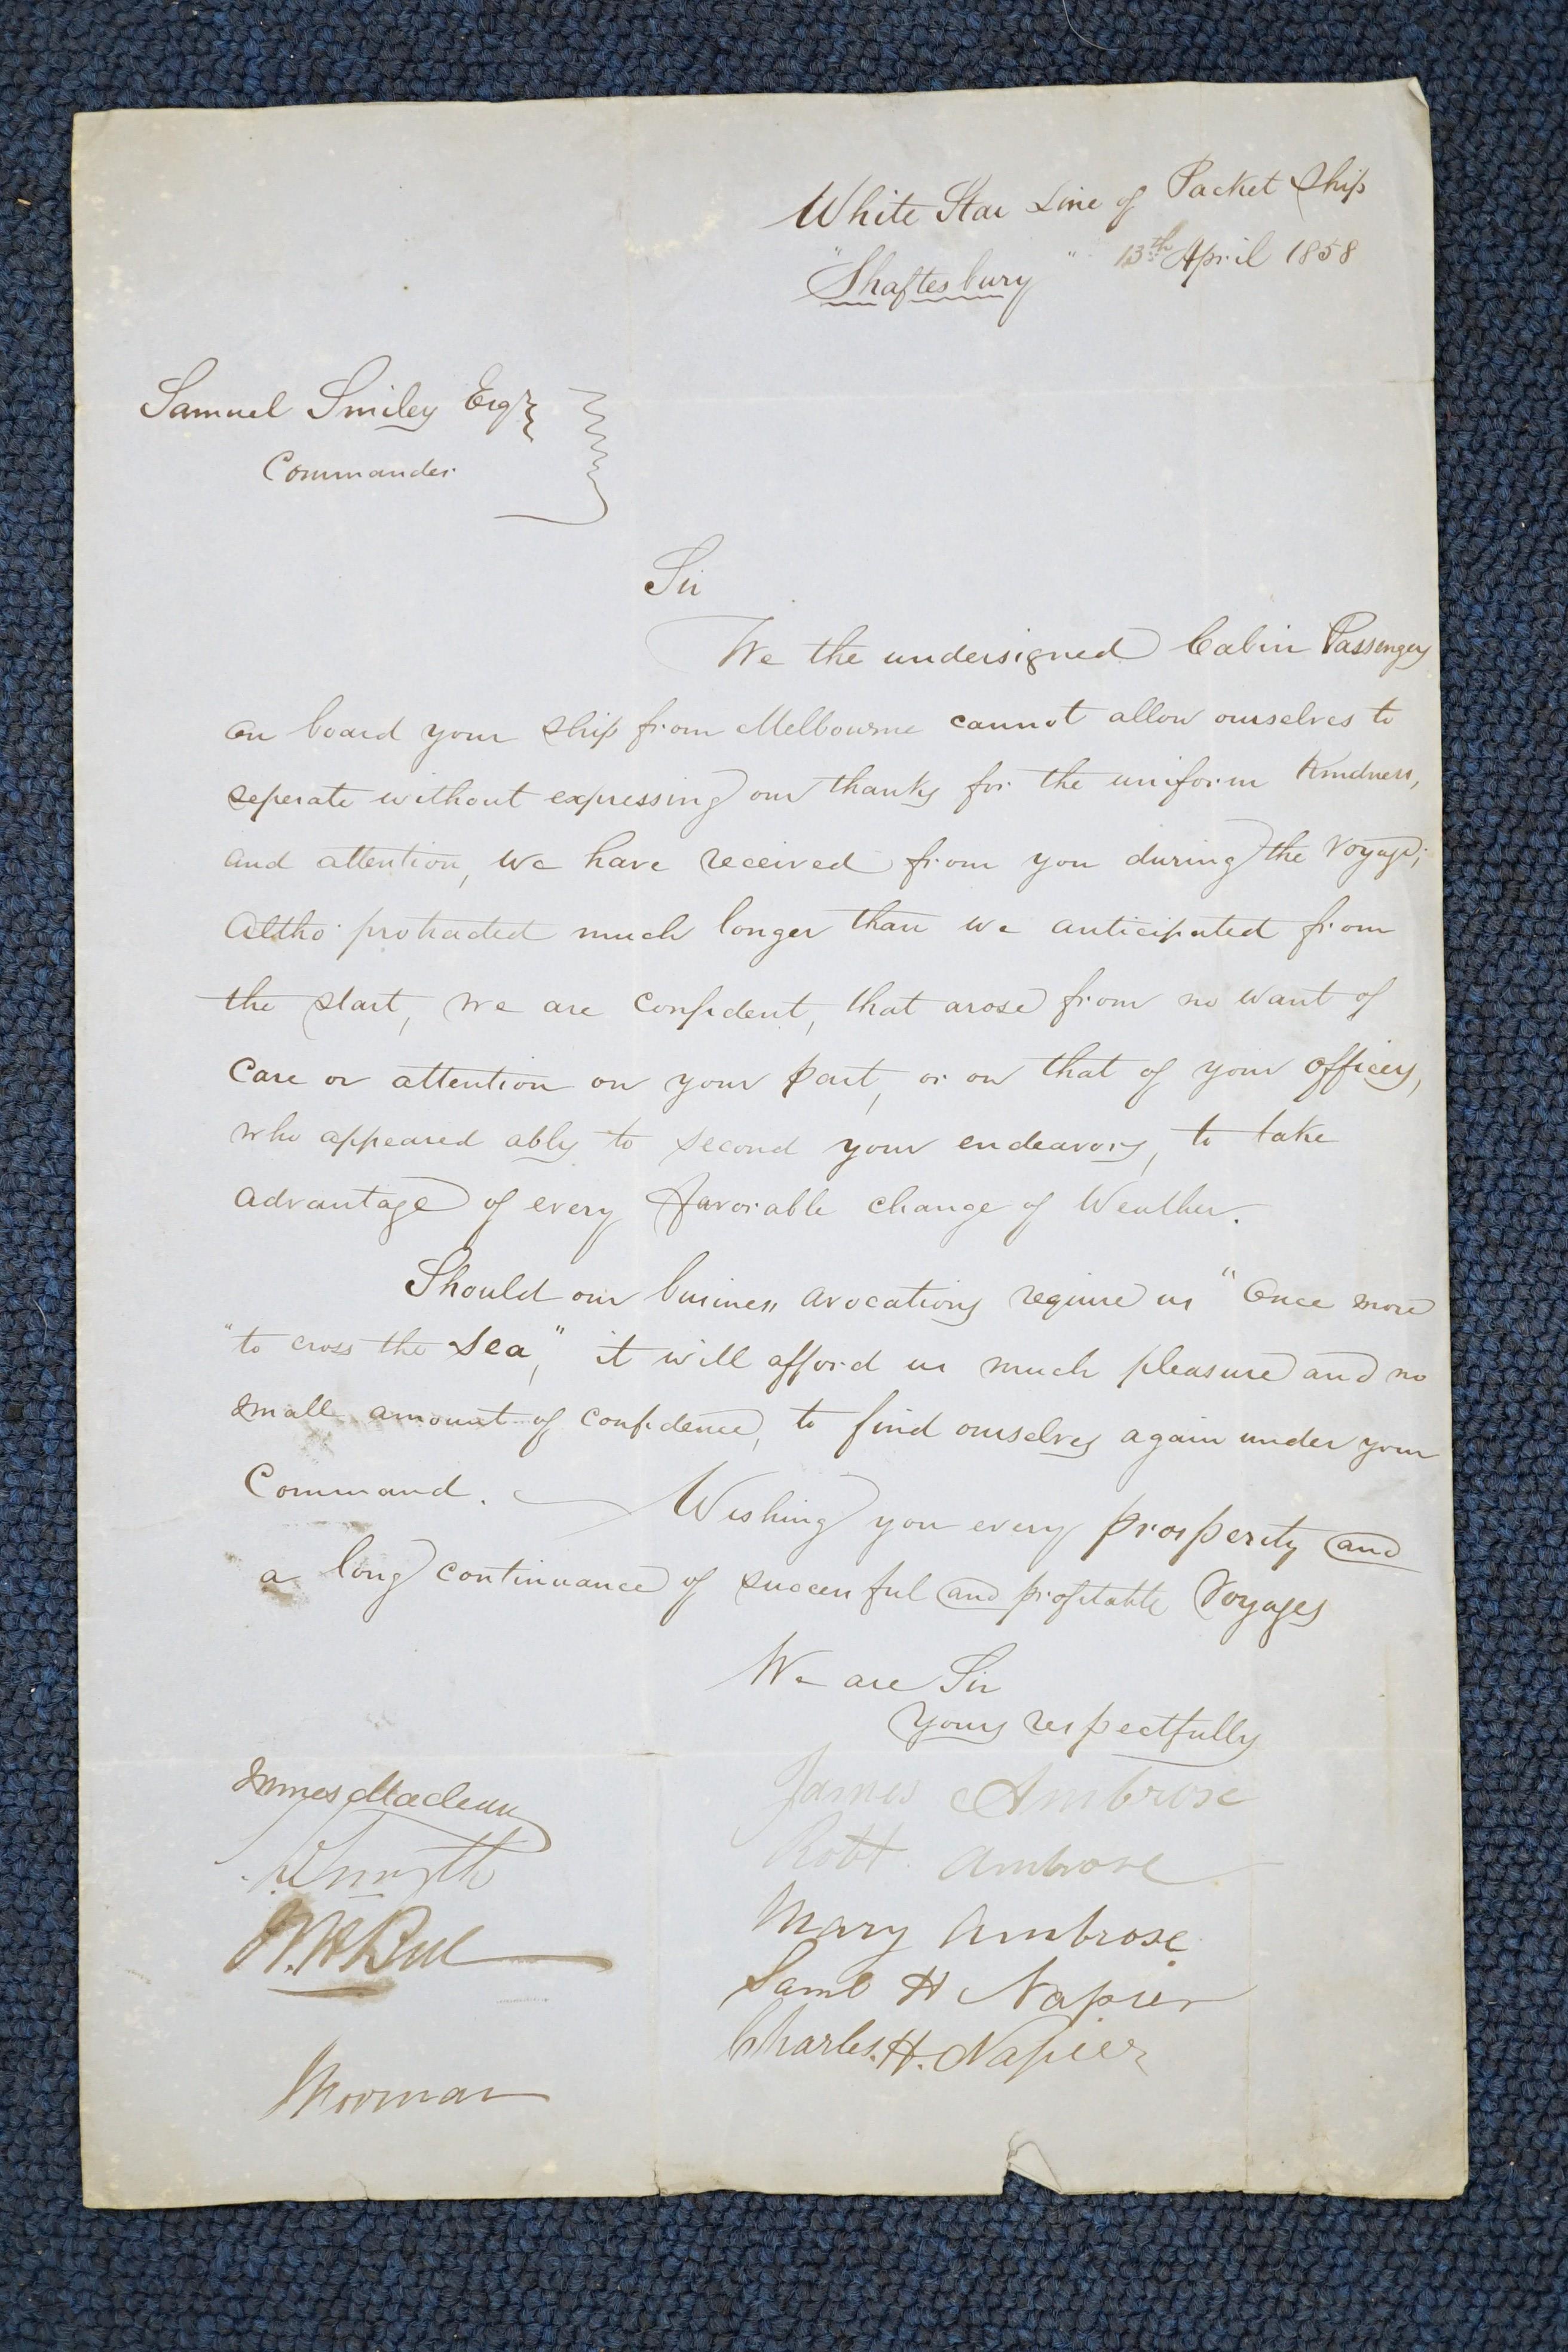 White Star Line of Packet Ship
"Shaftesbury" 13th April 1858
Samuel Smiley Esqr
Commander
Sir
We the undersigned Cabin Passengers
on board your Ship from Melbourne cannot allow ourselves to
seperate without expressing our thanks for the uniform Kindness,
and attention, we have received from you during the Voyage;
Altho' protracted much longer than we anticipated from
the start, we are confident, that arose from no want of
Care or attention on your part, or on that of your officers,
who appeared ably to second your endeavors, to take
advantage of every favorable change of Weather.
Should our business avocations require us "Once more
"to cross the Sea," it will afford us much pleasure and no
small amount of confidence, to find ourselves again under your
Command. Wishing you every prosperity and
a long continuance of successful and profitable Voyages
We are Sir
yours respectfully
James Ambrose
Robt. Ambrose
Mary Ambrose
Saml H Napier
Charles. H. Napier
Smyth